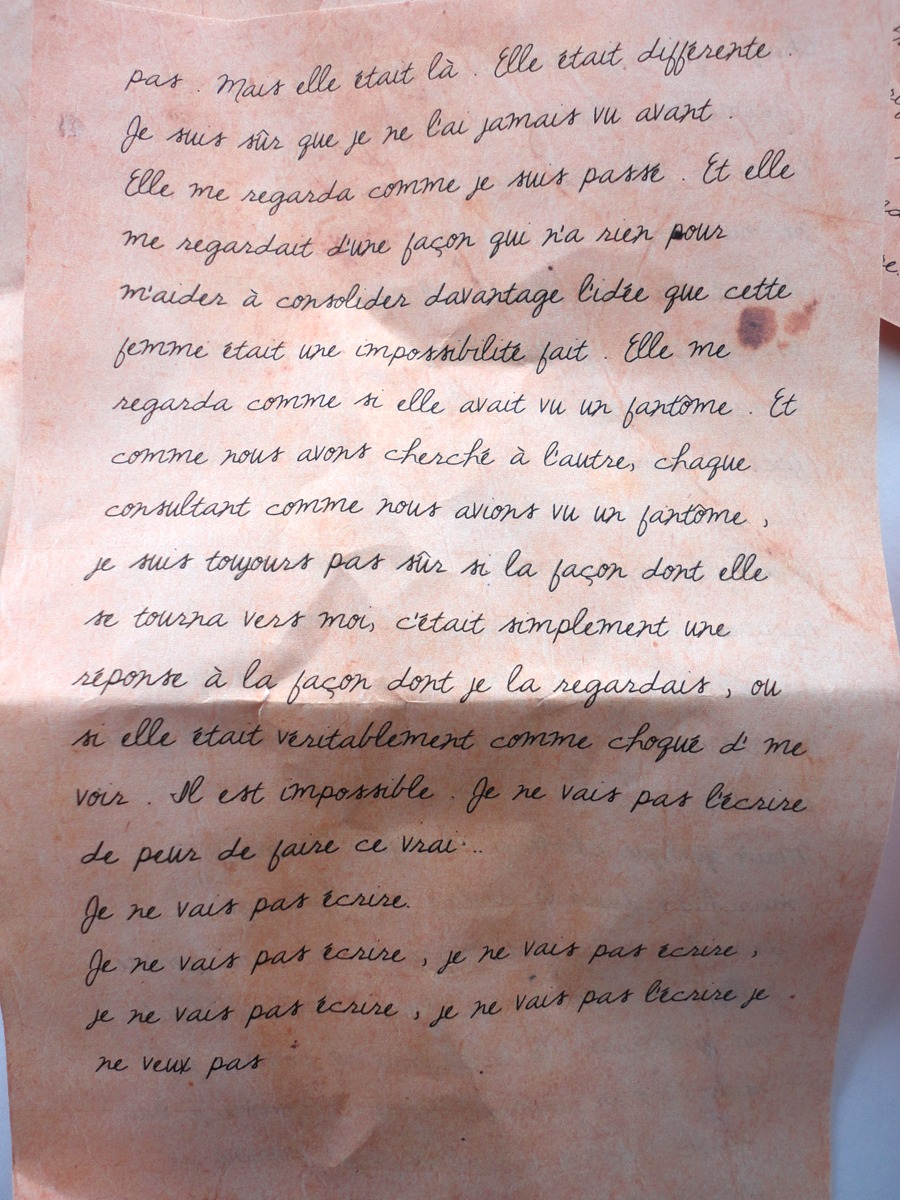 pas. Mais elle était là. Elle était différente.
Je suis sûr que je ne l'ai jamais vu avant.
Elle me regarda comme je suis passé. Et elle
me regardait d'une façon qui n'a rien pour
m'aider à consolider davantage l'idée que cette
femme était une impossibilité fait. Elle me
regarda comme si elle avait vu un fantôme. Et
comme nous avons cherché à l'autre, chaque
consultant comme nous avions vu un fantôme,
je suis toujours pas sûr si la façon dont elle
se tourna vers moi, c'était simplement une
réponse à la façon dont je la regardais, ou
si elle était véritablement comme choqué d' me
voir. Il est impossible. Je ne vais pas l'écrire
de peur de faire ce vrai...
Je ne vais pas écrire.
Je ne vais pas écrire, je ne vais pas écrire,
je ne vais pas écrire, je ne vais pas l'écrire je.
ne veux pas